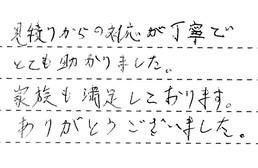 見積りからの対応が丁寧で
とても助かりました。
家族も満足しております。
ありがとうございました。